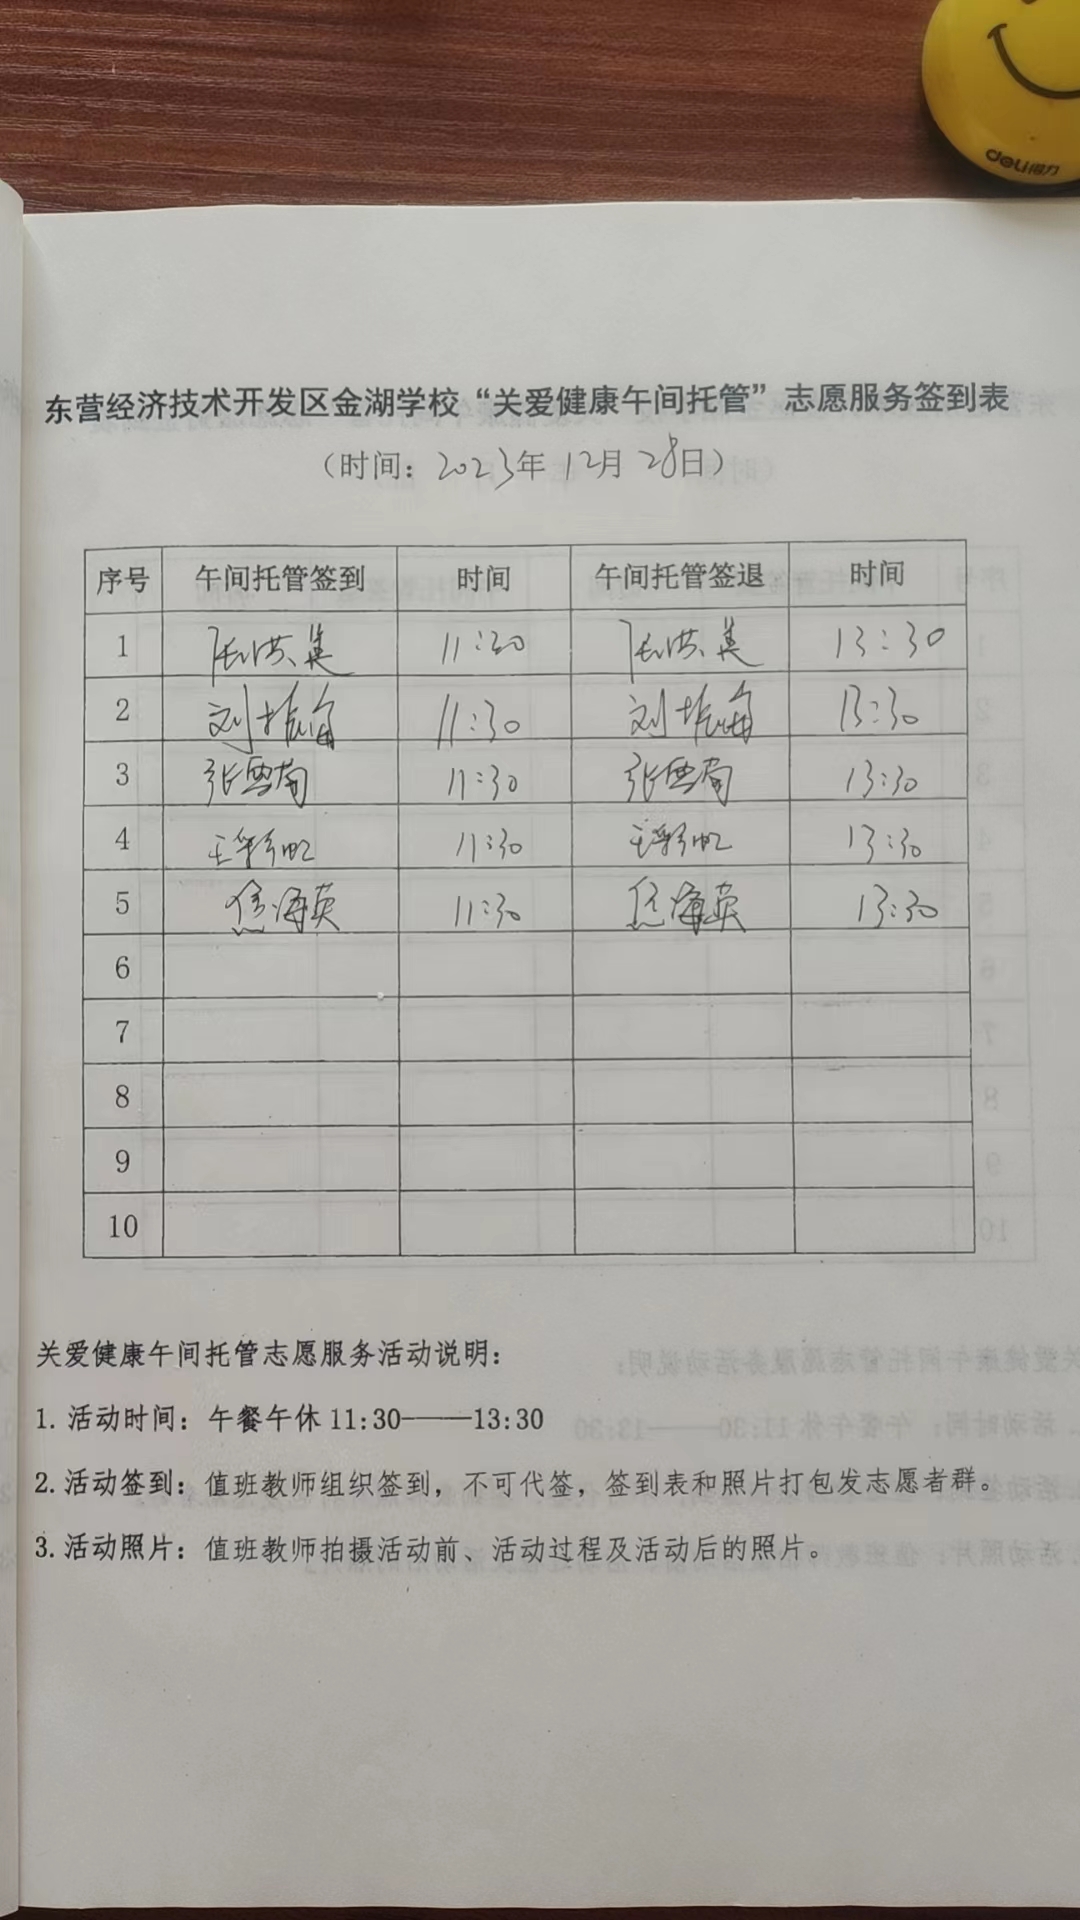 deli得力
东营经济技术开发区金湖学校“关爱健康午间托管”志愿服务签到表
（时间：2023年12月28日）
序号 午间托管签到 时间 午间托管签退 时间
1 11:30 13:30
2 刘振海 11:30 刘振海 13:30
3 张雪菊 11:30 张雪菊 13:30
4 王彩虹 11:30 王彩虹 13:30
5 焦海英 11:30 焦海英 13:30
6
7
8
9
10
关爱健康午间托管志愿服务活动说明：
1. 活动时间：午餐午休 11:30——13:30
2. 活动签到：值班教师组织签到，不可代签，签到表和照片打包发志愿者群。
3. 活动照片：值班教师拍摄活动前、活动过程及活动后的照片。